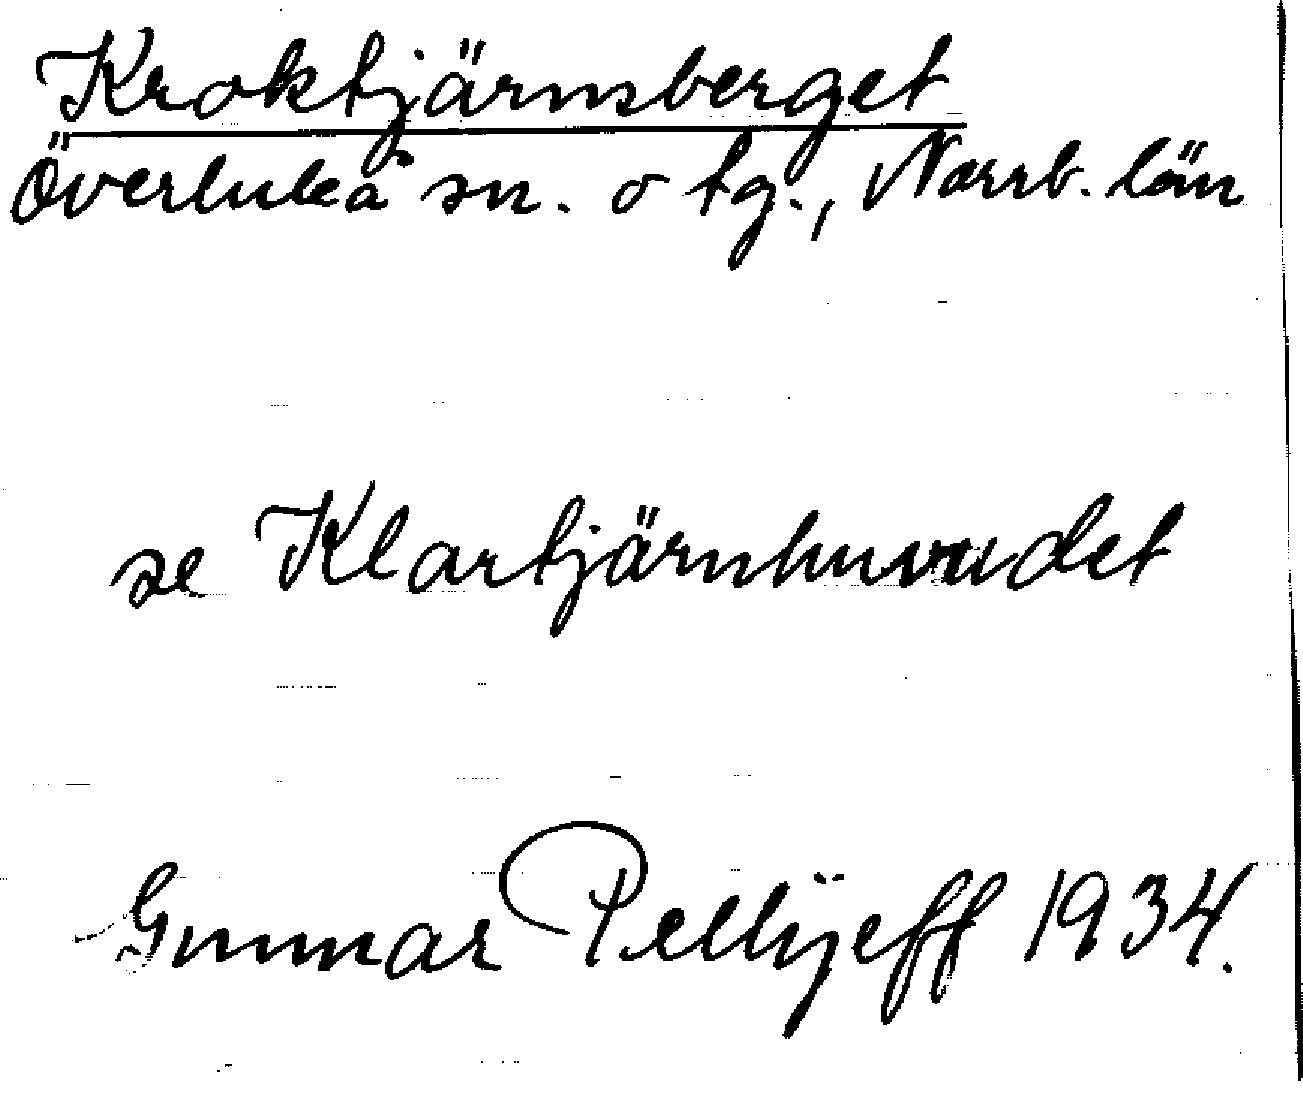 Kroktjärnsberget
Överluleå sn. o tg., Norrb. län
se Klartjärnhuvudet
Gunnar Pellijeff 1934.